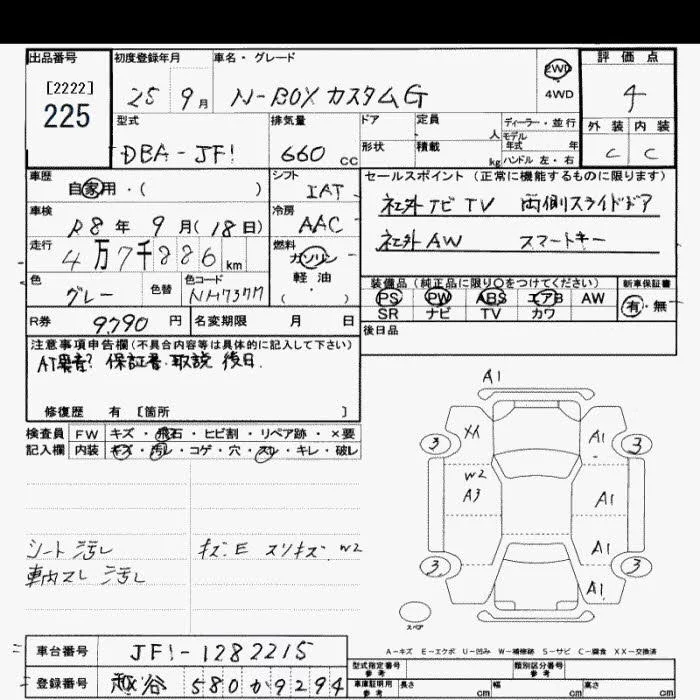 出品番号 初度登録年月 車名・グレード 2WD 評価点
[2222] 25 9月 N-BOXカスタムG 4WD 4
225
型式 排気量 ドア 定員 人 ディーラー・並行 外装 内装
モデル年式 年
DBA-JF1 660cc 形状 積載 kg ハンドル 左・右 C C
車歴 自家用・( ) シフト IAT セールスポイント(正常に機能するものに限ります)
社外ナビTV 両側スライドドア
車検 R8年9月(18日) 冷房 AAC
社外AW スマートキー
走行 4万7千886km 燃料 ガソリン
軽・油
( )
色 グレー 色替 色コード NH737M
装備品(純正品に限り○をつけてください) 新車保証書
PS PW ABS エアB AW 有・無
SR ナビ TV カワ
R券 9790円 名変期限 月 日 後日品
注意事項申告欄(不具合内容等は具体的に記入して下さい)
AT異音? 保証書.取説 後日.
修復歴 有 [箇所 ]
検査員 FW キズ・飛石・ヒビ割・リペア跡・×要
記入欄 内装 キズ・汚レ・コゲ・穴・スレ・キレ・破レ
A1
XX A1
3 3
W2
A3 A1
A1
3 3
A1
シート汚レ キズE スリキズ W2
車内スレ 汚レ
スペア
A-キズ E-エクボ U-凹み W-補修跡 S-サビ C-腐食 XX-交換済
車台番号 JF1-1282215
登録番号 越谷 580か9294
型式指定番号 参考 類別区分番号 参考
車庫証明用 参考 長さ cm 幅 cm 高さ cm